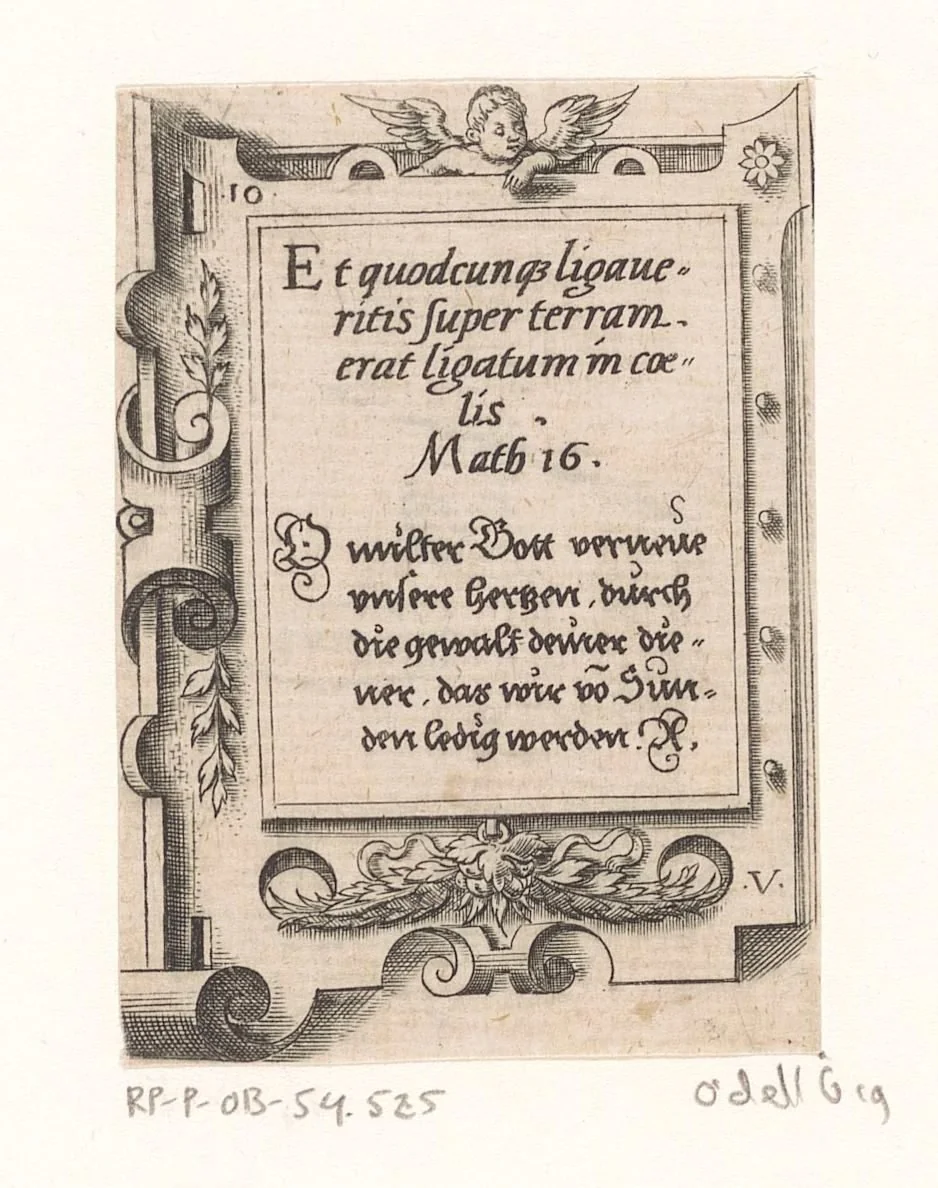 .10.
Et quodcunqꝫ ligaue„
ritis ſuper terram.
erat ligatum in cœ„
lis .
Math 16.
O milter Gott verneüe
vnſere hertzen, durch
die gewalt deiner die„
ner, das wir võ Sün„
den ledig werden. A.
.V.
RP-P-OB-54.525